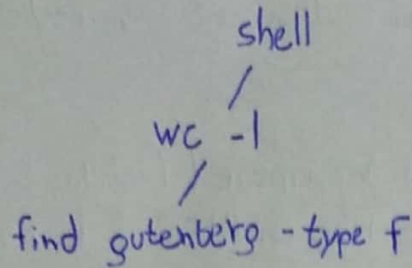 shell
wc -l
find gutenberg -type f